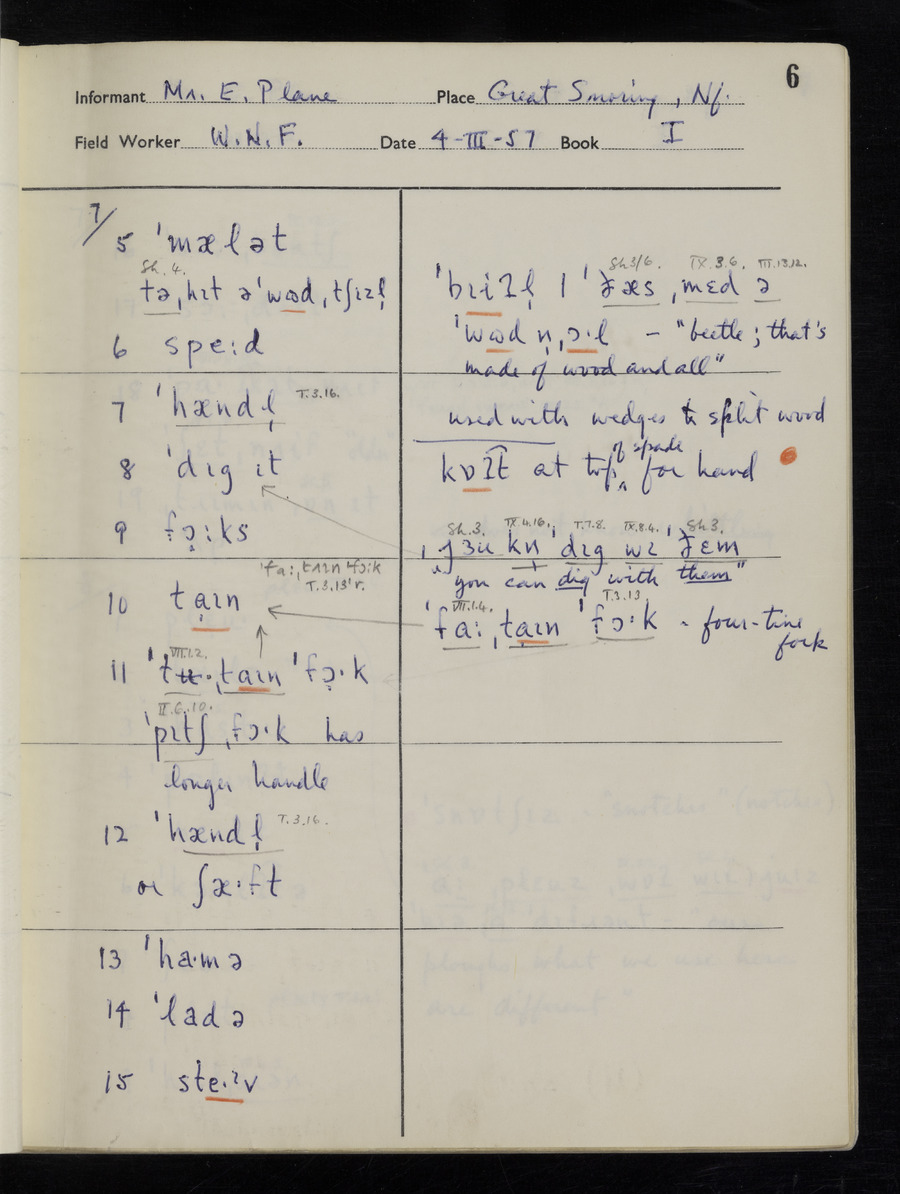 6
Informant Mr. E. Plane Place Great Snoring, Nf.
Field Worker W.N.F. Date 4-III-57 Book I
7/
5 ˈmælət
Sh. 4.
tə ˌhɪt ə ˈwɵd ˌtʃɪzl̩
6 spe:d
7 ˈhændl̩ T.3.16.
8 ˈdɪg ɪt
9 fɔ̣:ks
ˈfa: ˌtaɪn ˈfɔ:k
T.3.13'r.
10 taɪn
VII.1.2.
11 ˈtʉ· ˌtaɪn ˈfɔ̣·k
II.6.10.
ˈpɪtʃ ˌfɔ·k has
longer handle
12 ˈhændl̩ T.3.16.
or ʃæ·ft
13 ˈha·mə
14 ˈladə
15 ste·ɪv
Sh3/6. IX.3.6. III.13.12.
ˌmɛd ə
– "beetle; that's
made of wood and all"
used with wedges to split wood
of spade
at top ‸ for hand
Sh.3. IX.4.16. T.7.8. IX.8.4. Sh.3.
kn̩ ˈdɪg wɪ
"you can dig with them"
VII.1.4. T.3.13
ˈfa: ˌtaɪn ˈfɔ·k - four-tine
fork